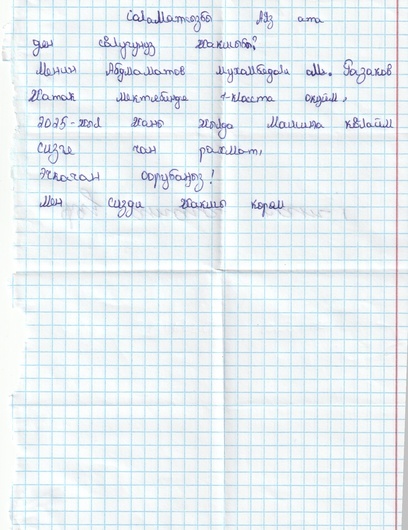 Саламатсызбы Аяз ата
ден соолугунуз жакшыбы?
Менин Абдмаматов Мухамбедали атм. Раззаков
Жатак мектебинде 1-класста окуйм,
2025-жыл жаны жылда машина каалайм
сизге чон рахмат,
Эчкачан оорубаңыз!
Мен сизди жакшы корам